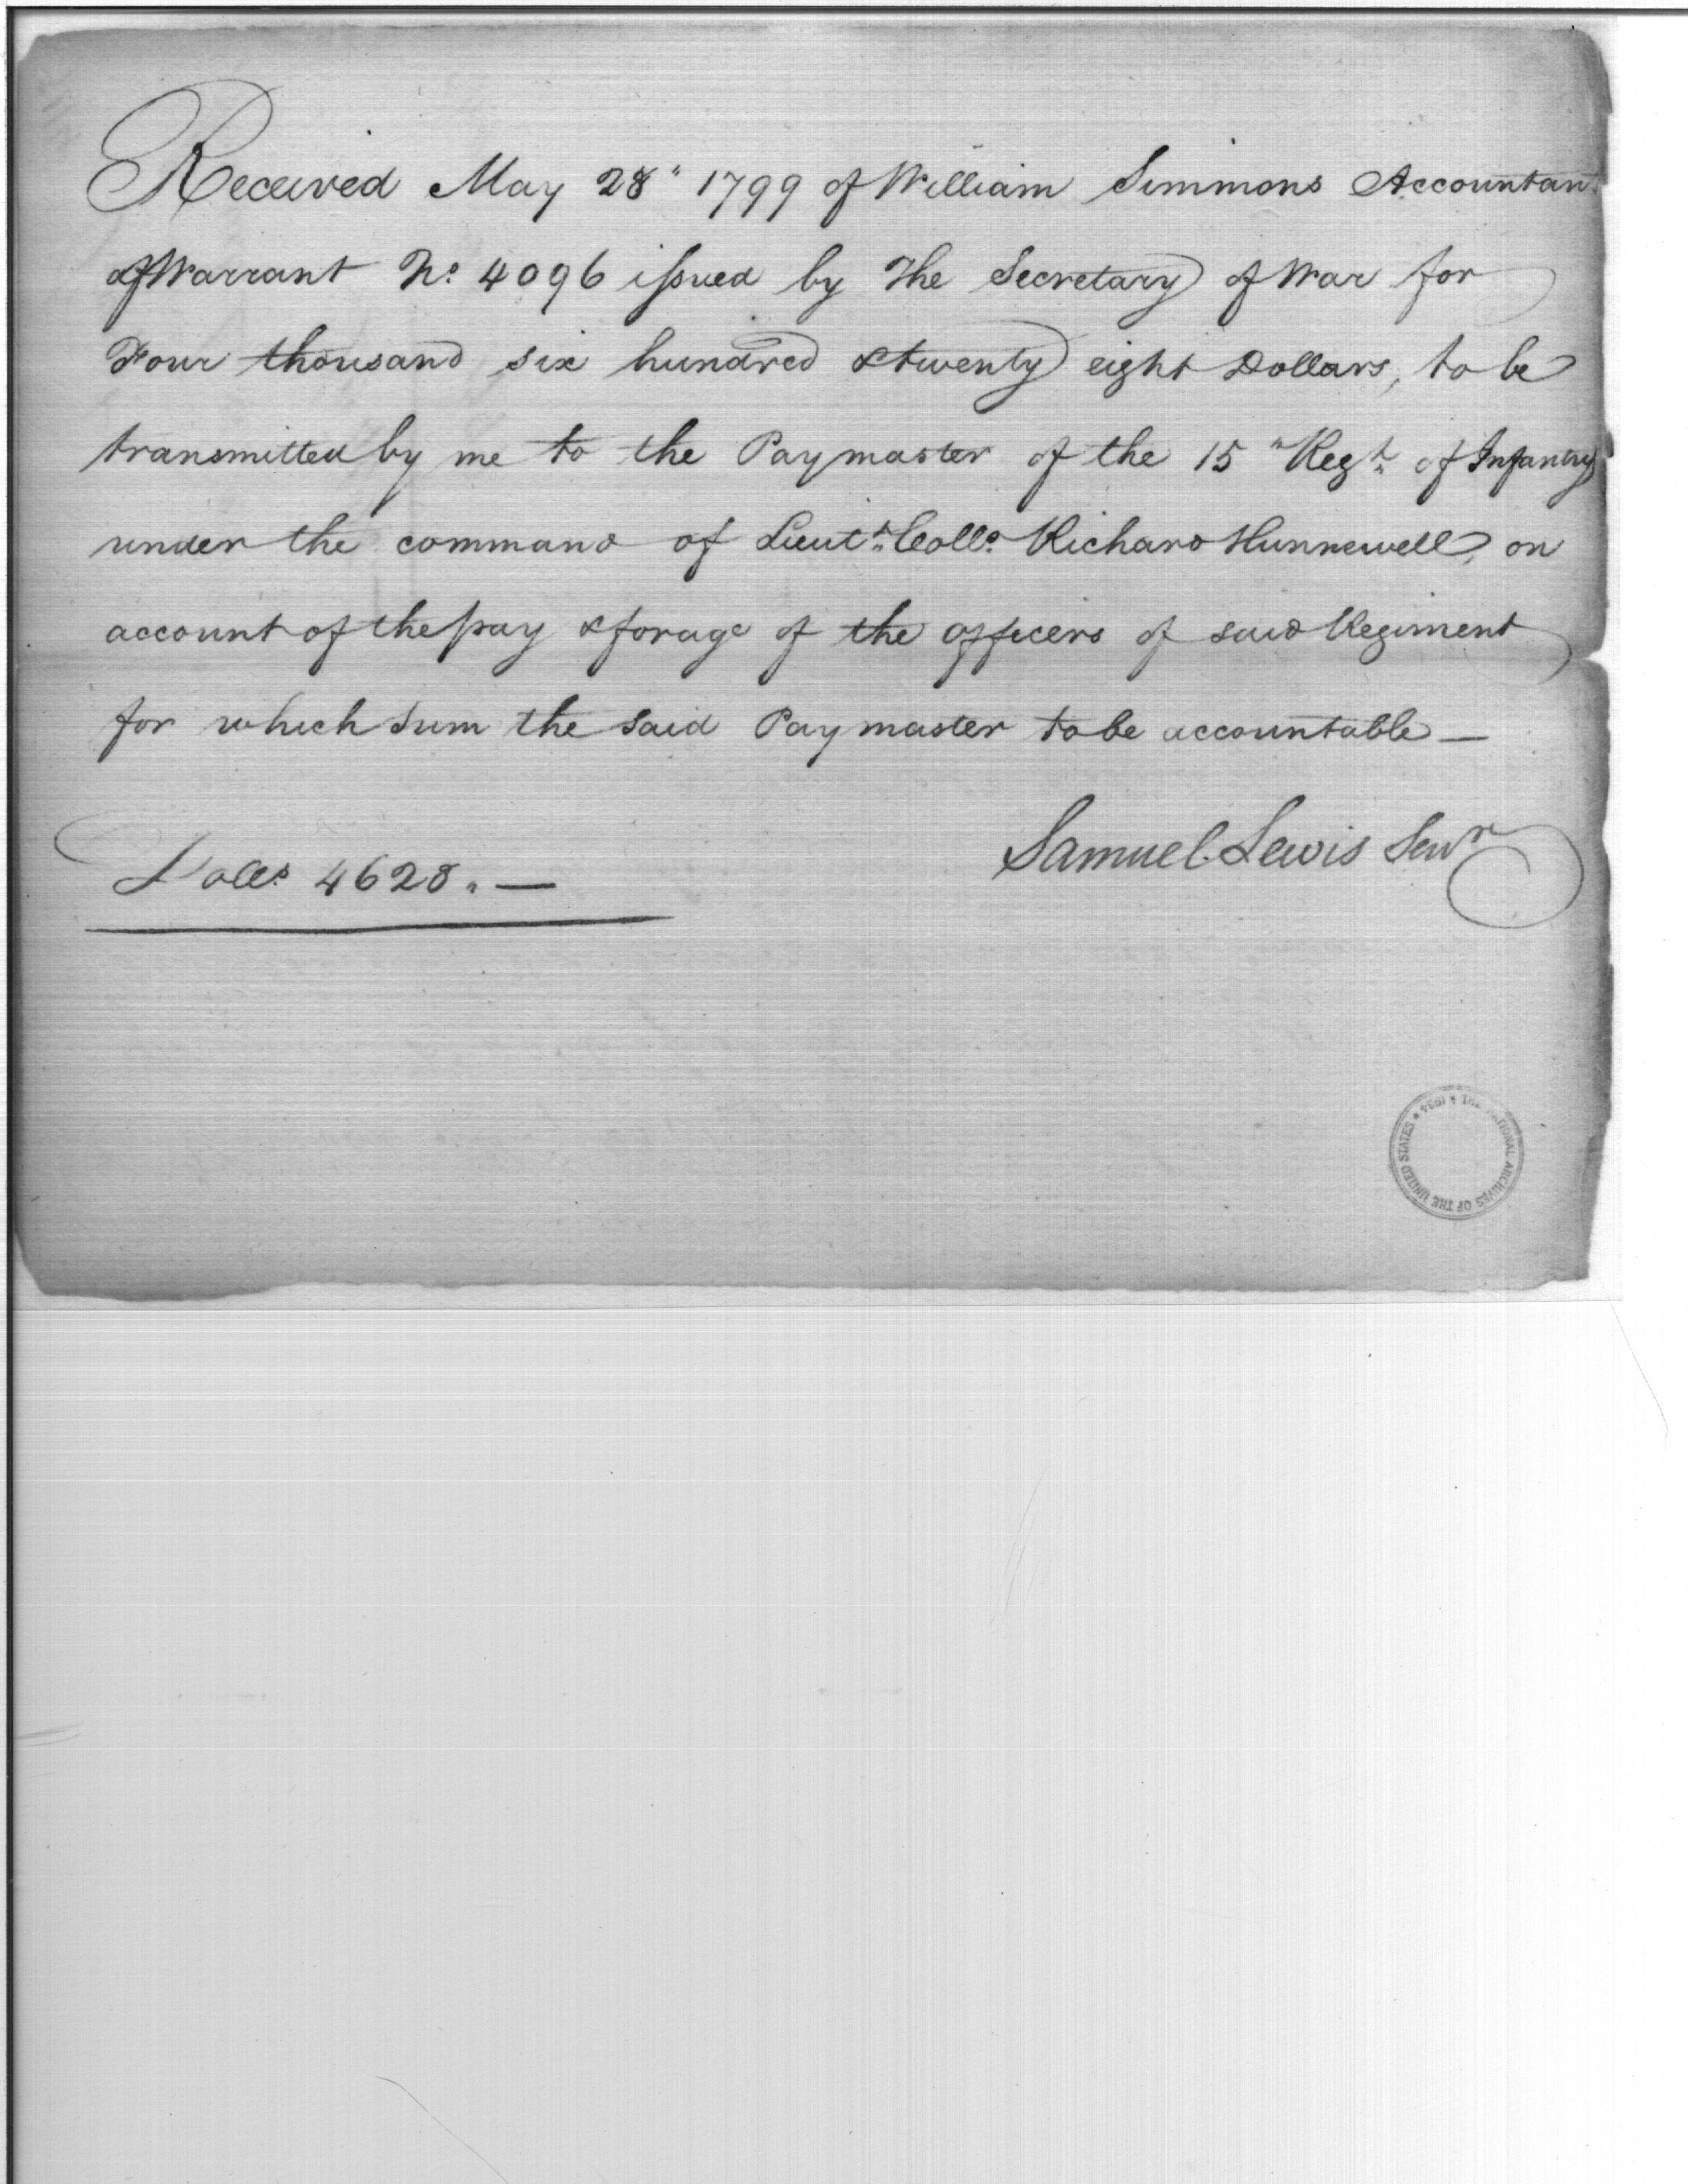 Received May 28" 1799 of William Simmons Accountant
of Warrant No. 4096 issued by The Secretary of War for
Four thousand six hundred & twenty eight Dollars, to be
transmitted by me to the Paymaster of the 15" Regt. of Infantry
under the command of Lieut. Collo. Richard Hunnewell, on
account of the pay & forage of the officers of said Regiment
for which sum the said Paymaster to be accountable —
Samuel Lewis Senr
Dolls. 4628. —
THE NATIONAL ARCHIVES OF THE UNITED STATES ★ 1934 ★